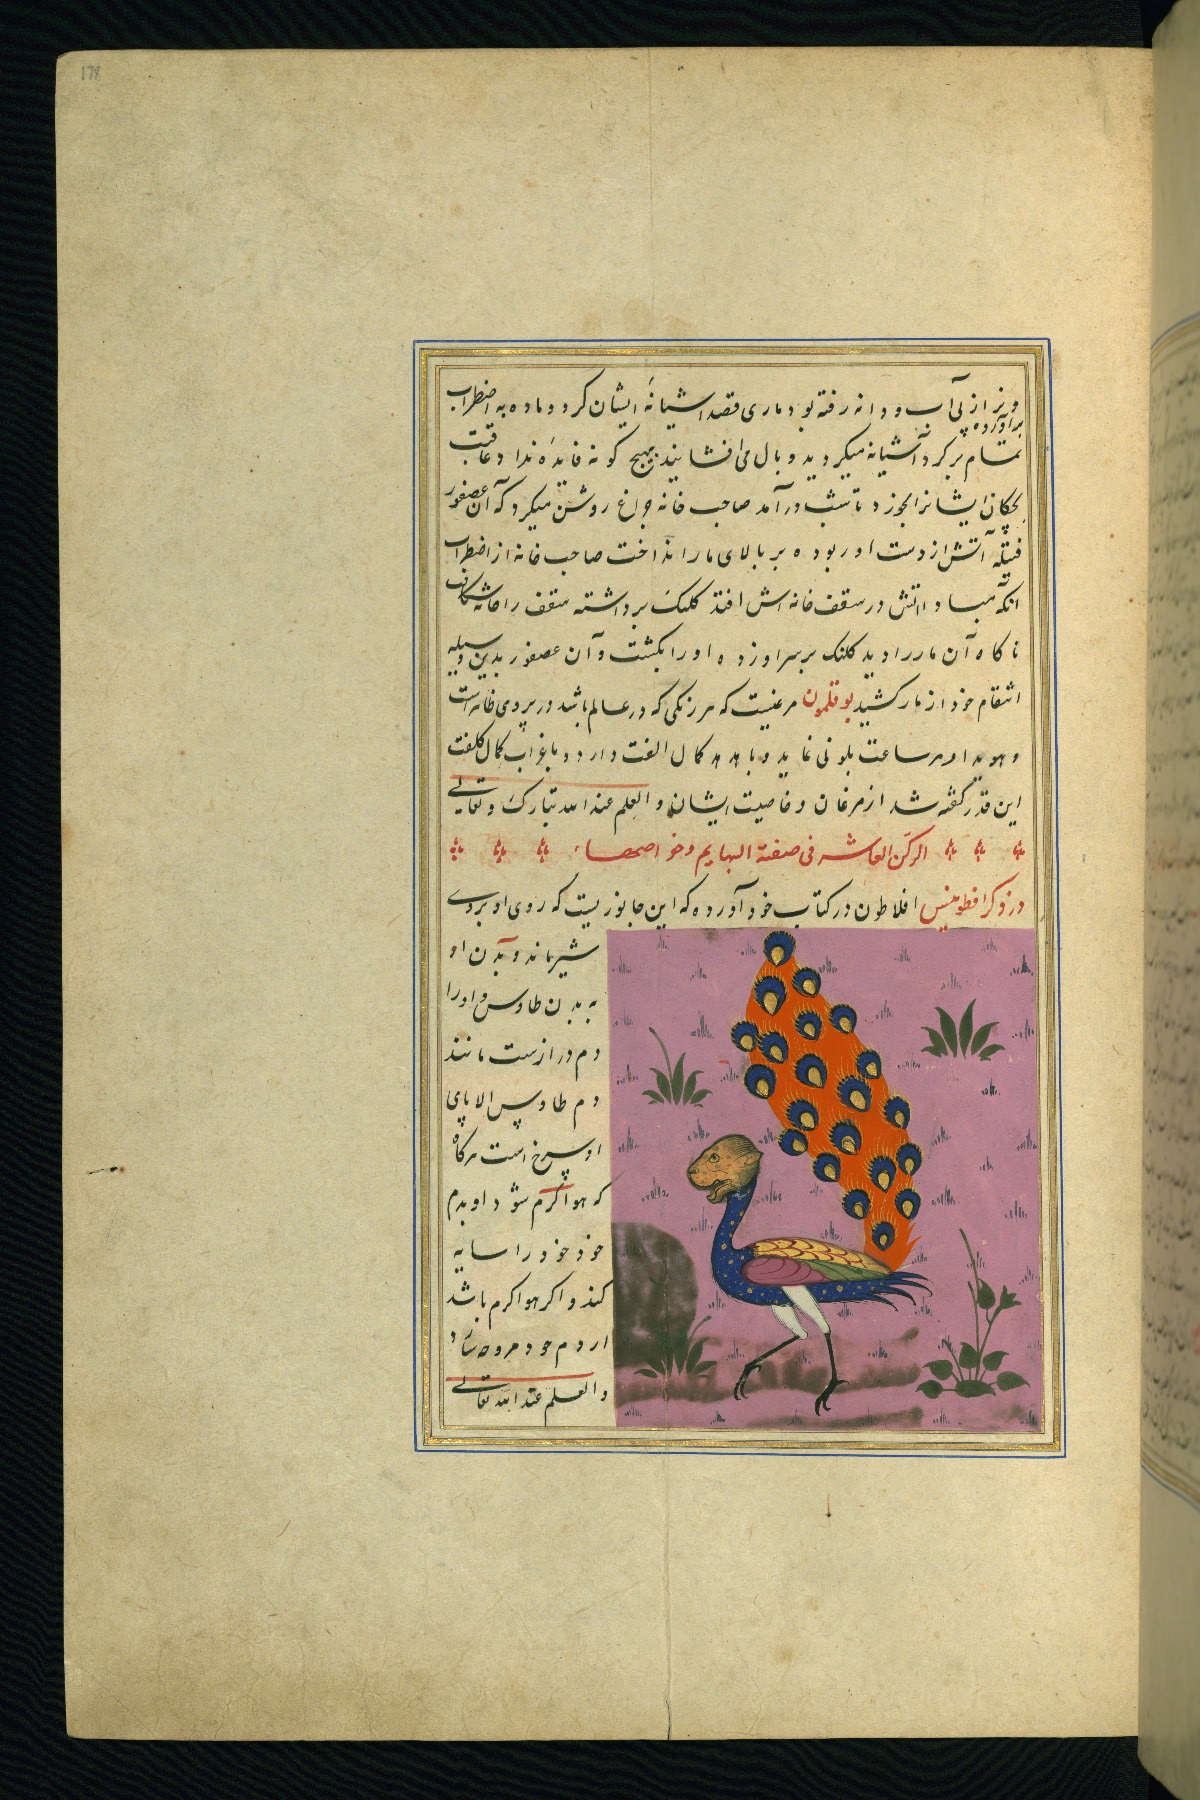 178
و نر از پی آب و دانه رفته بود ماری قصد آشیانهٔ ایشان کرد و ماده به اضطراب
برآورده
تمام بر کرد آشیانه میکردید و بال می افشانید بهیچ کونه فایدهٔ ندا د عاقبت
بچکان ایشانرا بخورد تا شب درآمد صاحب خانه چراغ روشن میکرد که آن عصفور
فتیله آتش از دست او ربوده بر بالای مار انداخت صاحب خانه از اضطراب
آنکه مبادا آتش در سقف خانه اش افتد کلنک برداشته سقف را شکافت
ناکاه آن مار را دید کلنک بر سر او زده او را بکشت و آن عصفور بدین وسیله
انتقام خود از مار کشید بوقلمون مرغیست که هر رنکی که در عالم باشد در پر وی ظاهراست
و هویدا و هر ساعت بلونی نماید و با هدهد کمال الفت دارد و با غراب کمال کلفت
این قدر کفته شد از مرغان و خاصیت ایشان و العلم عند الله تبارک و تعالی
الرکن العاشر فی صفة البهایم و خواصها
در ذکر افطومنس افلاطون در کتاب خود آورده که این جانوریست که روی او بروی
شیر ماند و بدن او
به بدن طاوس و او را
دم درازست مانند
دم طاوس الا پای
او سرخ است هر کاه
که هوا کرم شود او بدم
خود خود را سایه
کند و اکر هوا کرم باشد
از دم خود مروحه سازد
و العلم عند الله تعالی